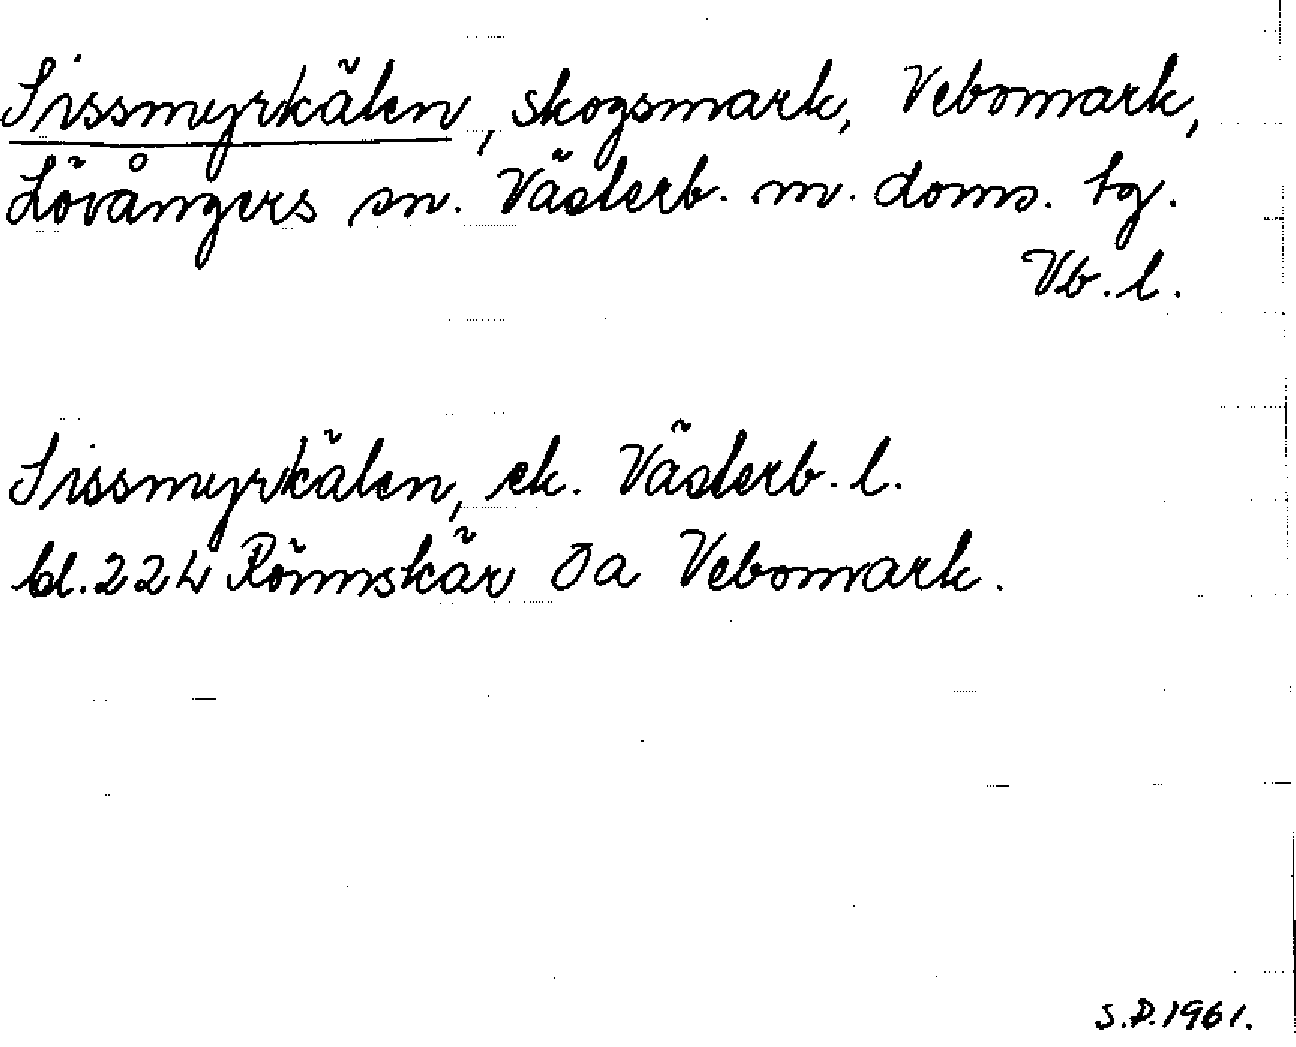 Sissmyrkälen, skogsmark, Vebomark,
Lövångers sn. Västerb. m. doms. tg.
Vb. l.
Sissmyrkälen, ek. Västerb. l.
bl. 224 Rönnskär Öa Vebomark.
S.D. 1961.